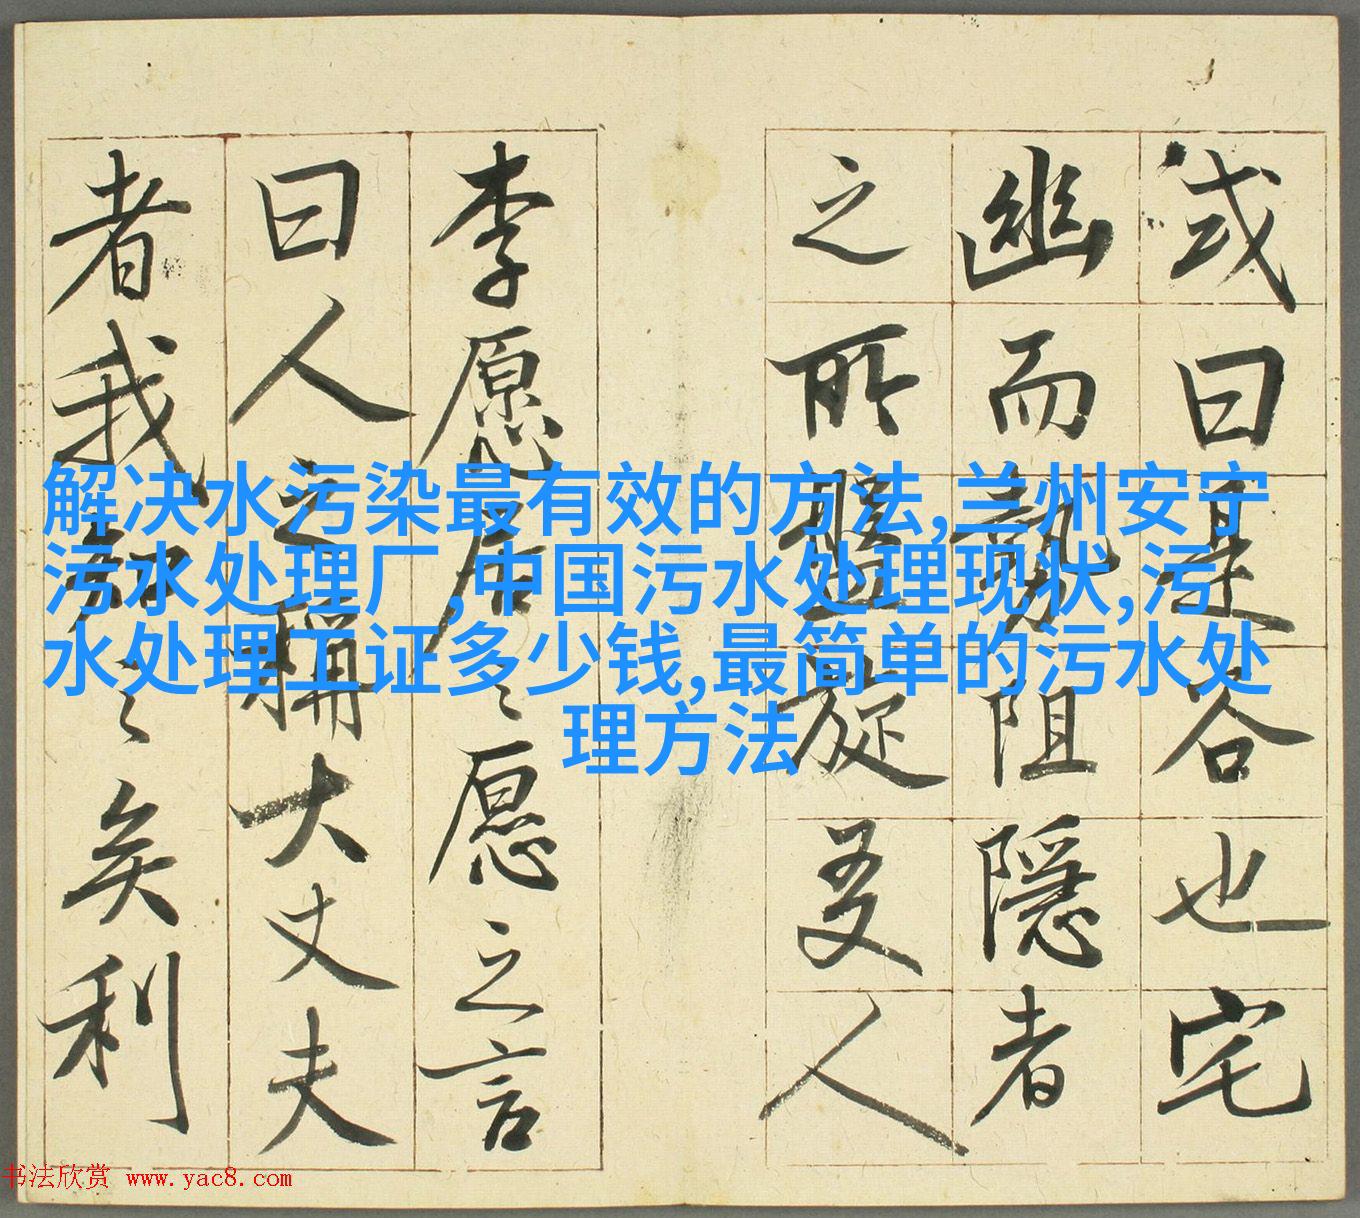 或曰是谷也宅
幽而勢阻隱者
之所盤旋友人
李愿居之愿之言
曰人之稱大丈夫
者我知之矣利
解决水污染最有效的方法,兰州安宁
污水处理厂,中国污水处理现状,污
水处理工证多少钱,最简单的污水处
理方法
书法欣赏 www.yac8.com